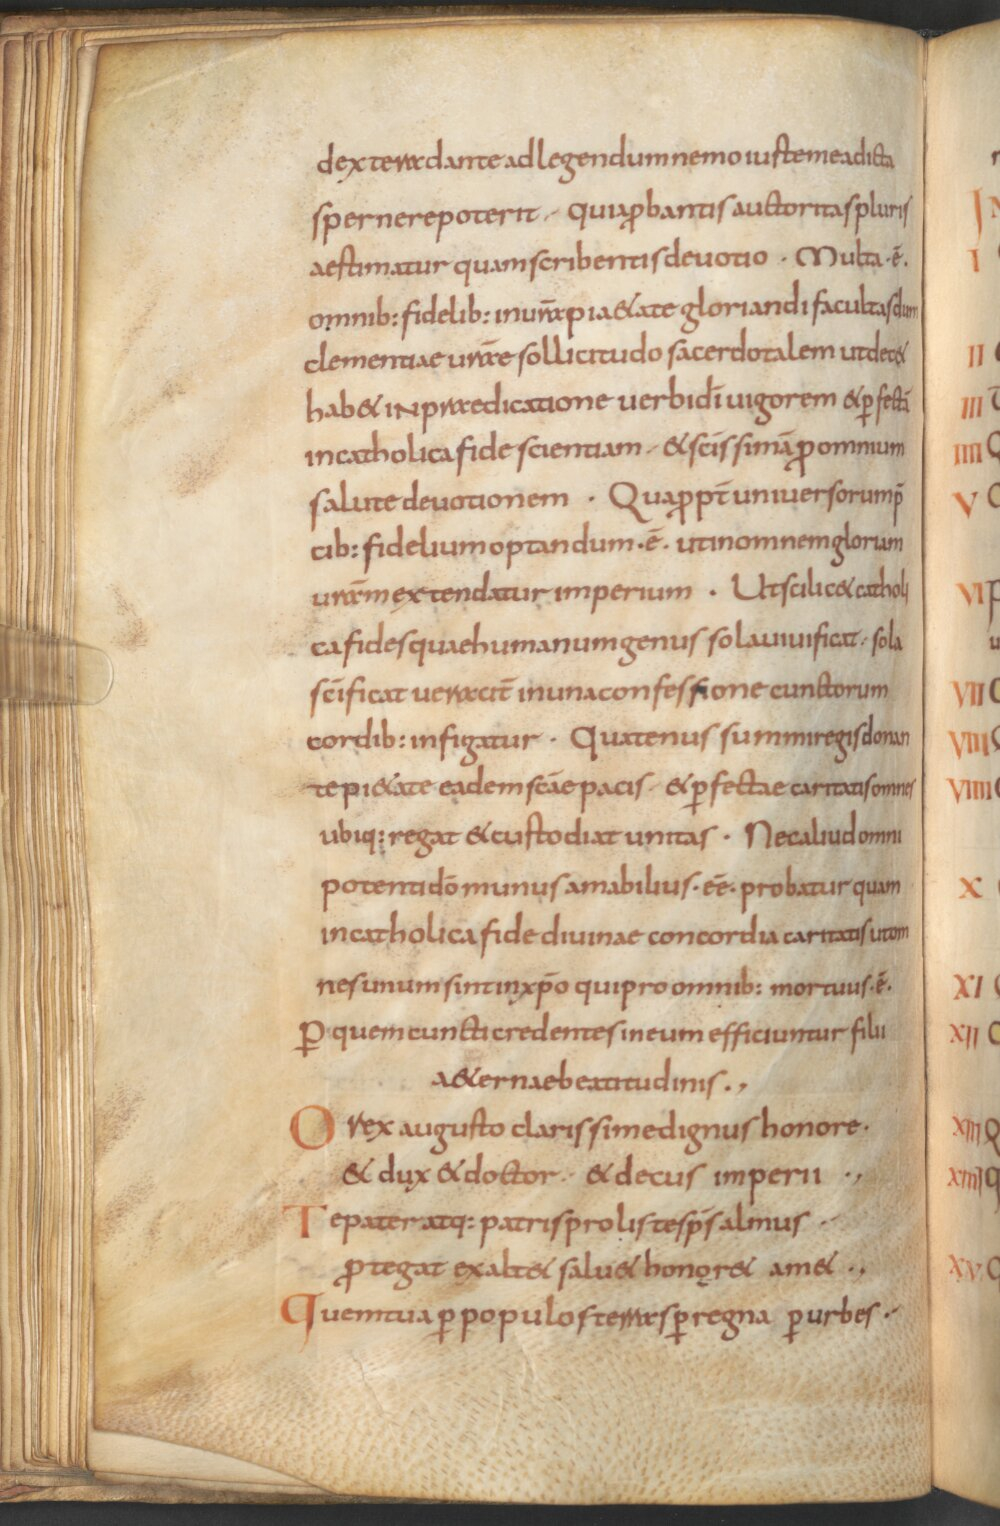 dexteradante adlegendum nemo iuste mea dicta
spernere poterit · quia ꝓbantis auctoritas pluris
aestimatur quam scribentis deuotio · Multa · ē ·
omnib: fidelib: in ur̄a pi&ate gloriandi facultas dum
clementiae ur̄ae sollicitudo sacerdotalem ut dec&
hab& in praedicatione uerbi dī uigorem & ꝑfectā
in catholica fide scientiam · & scīssimā ꝓ omnium
salute deuotionem · Quaꝓpt̄ uniuersorum p̄
cib: fidelium optandum · ē · ut in omnem gloriam
ur̄am extendatur imperium · Ut scilic& catholi
ca fides quae humanum genus sola uiuificat · sola
scīficat ueracit̄ in una confessione cunctorum
cordib: infigatur · Quatenus summi regis donan
te pi&ate eadem scāe pacis · & ꝑfectae caritatis omnes
ubiq: regat & custodiat unitas · Nec aliud omni
potenti dō munus amabilius · eē · probatur quam
in catholica fide diuinae concordia caritatis ut om
nes unum sint in xp̄o qui pro omnib: mortuus · ē ·
ꝑ quem cuncti credentes in eum efficiuntur filii
a&ernae beatitudinis .,
O rex augusto clarissime dignus honore ·
& dux & doctor · & decus imperii .,
Te pater atq: patris prolis te sp̄s almus ·
ꝓtegat exalt& salu& honor& am& .,
Quem tua ꝑ populos terras ꝑ regna ꝑ urbes ·
I
II
III
IIII
V
VI
VII
VIII
VIIII
X
XI
XII
XIII
XIIII
XV